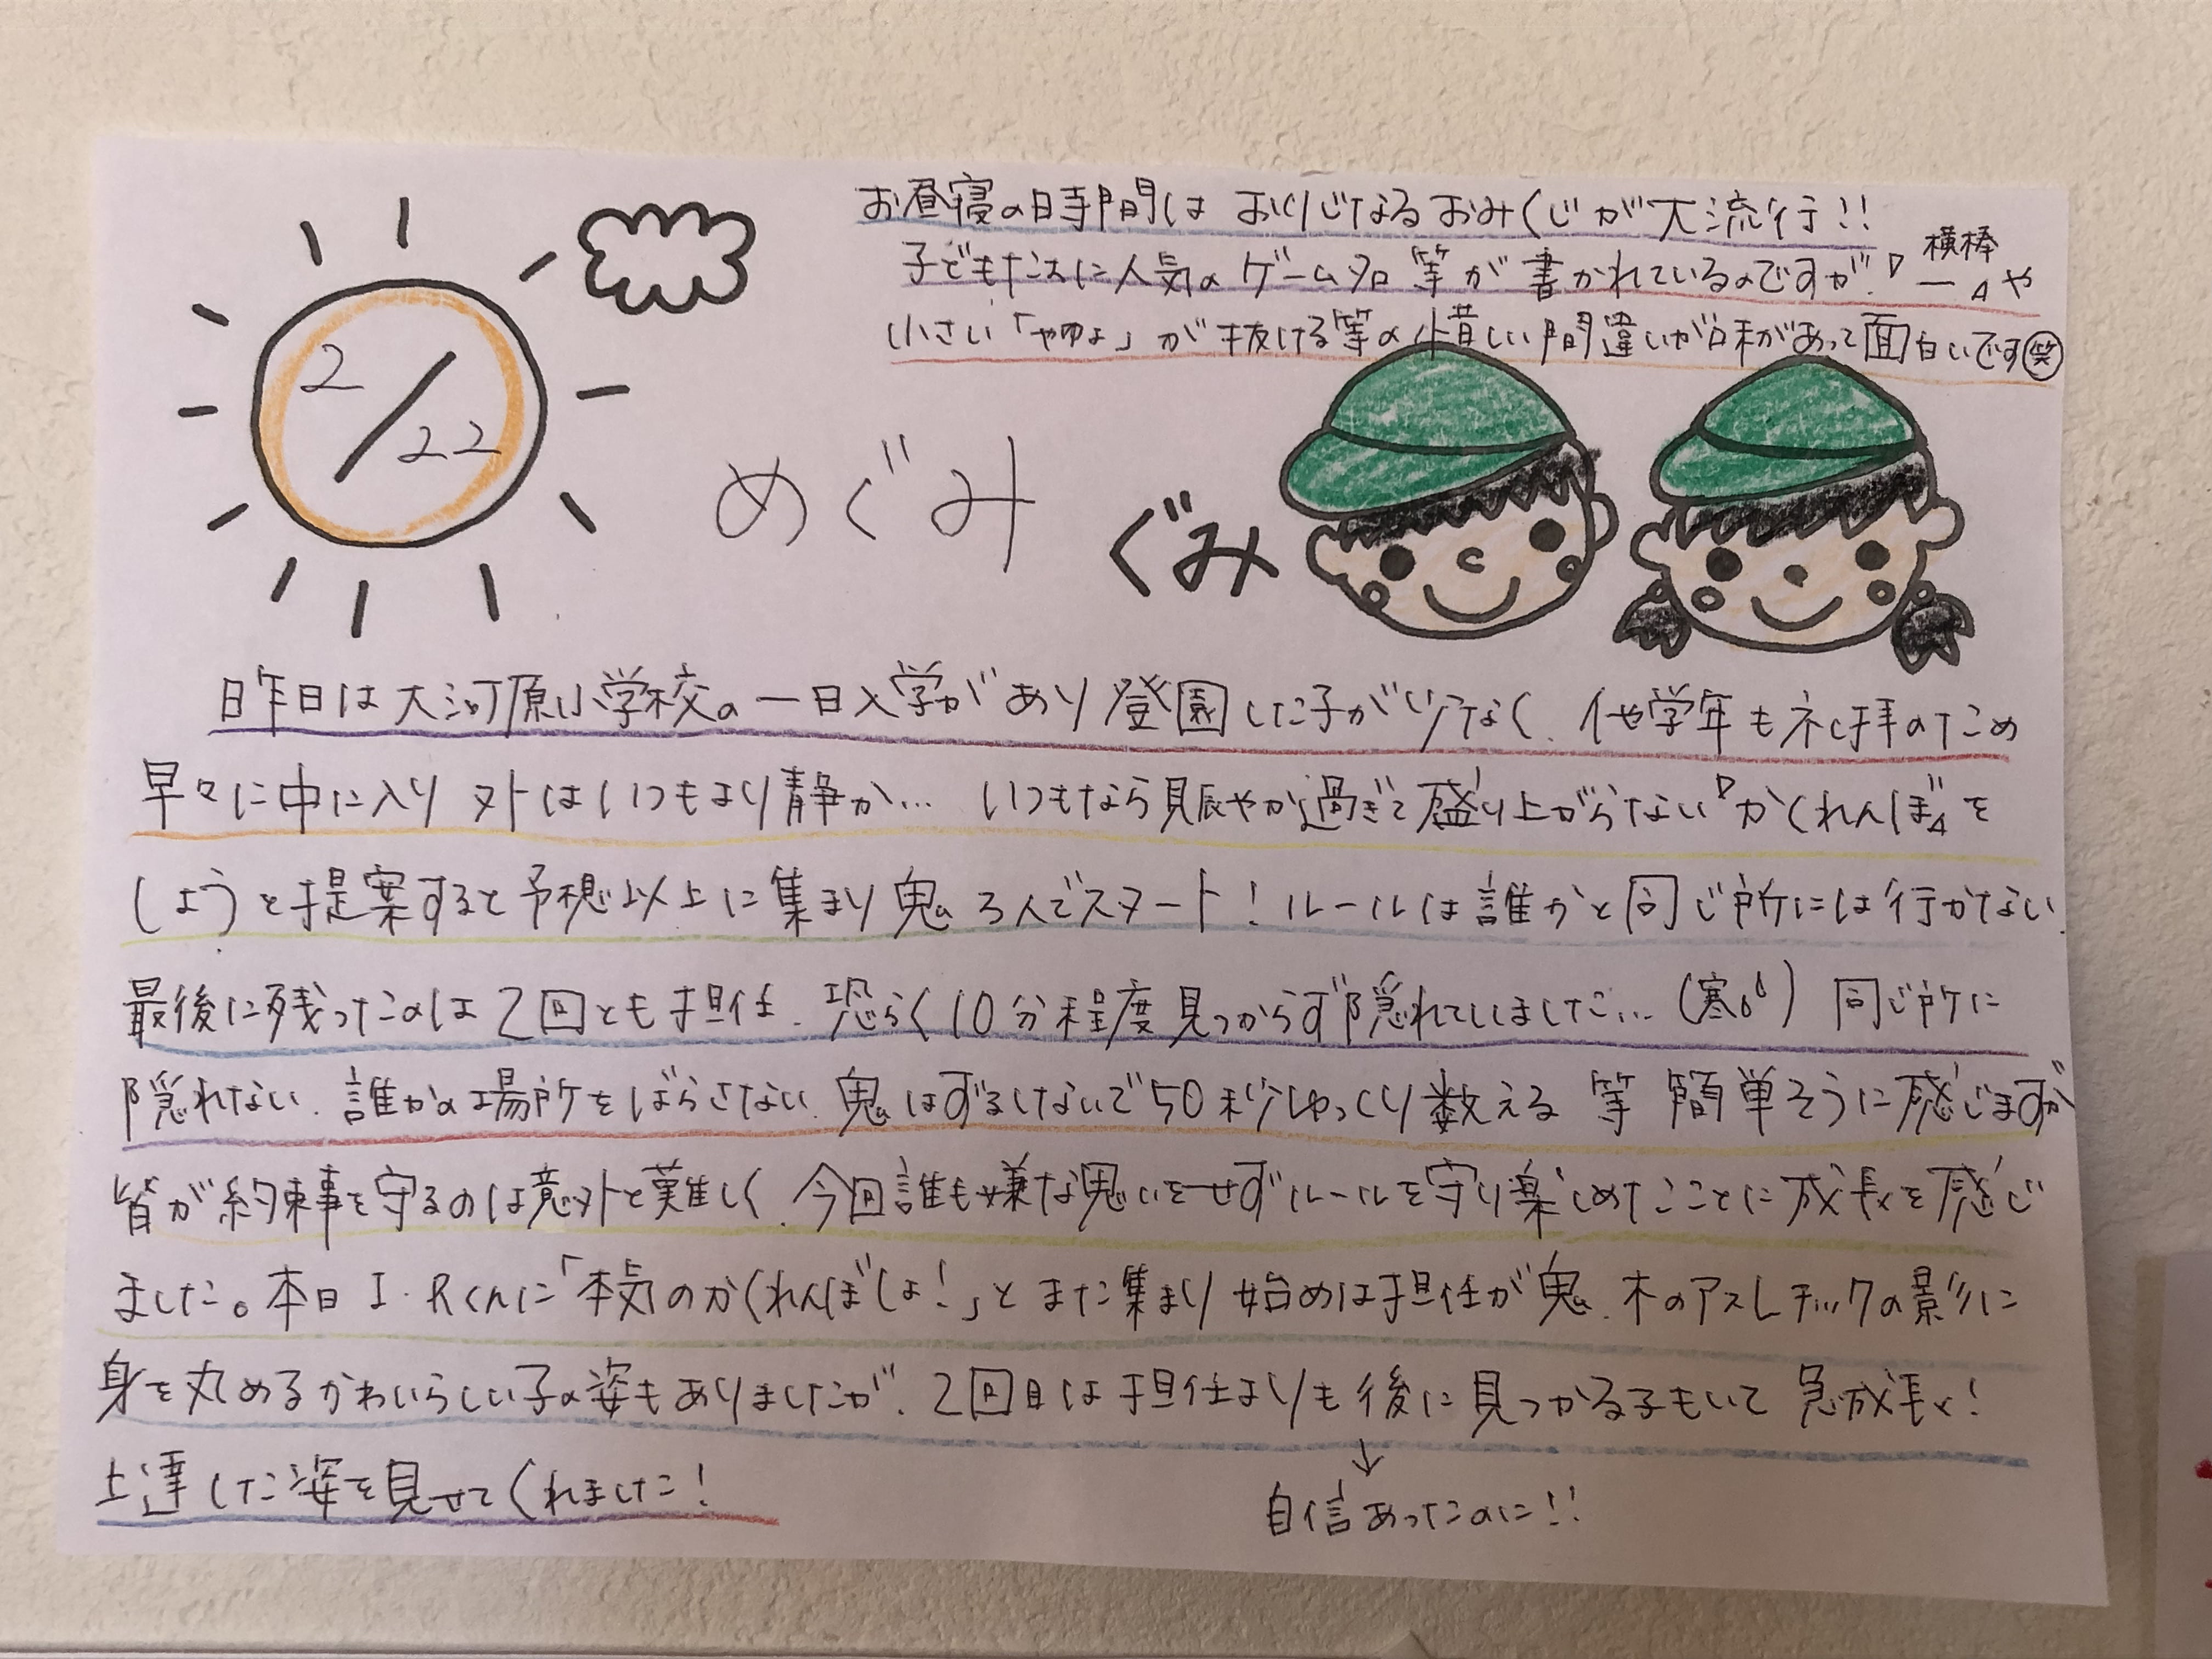 2/22
お昼寝の時間は おりじなるおみくじが大流行!!
子どもたちに人気のゲーム名等が書かれているのですが〝横棒 ー〟や
小さい「ゃゅょ」が抜ける等の惜しい間違いが味があって面白いです㊗
めぐみ
ぐみ
昨日は大河原小学校の一日入学があり登園した子が少なく、他学年も礼拝のため
早々に中に入り 外はいつもより静か… いつもなら賑やか過ぎて盛り上がらない〝かくれんぼ〟を
しようと提案すると予想以上に集まり鬼3人でスタート! ルールは誰かと同じ所には行かない
最後に残ったのは2回とも担任、恐らく10分程度見つからず隠れていました…(寒) 同じ所に
隠れない、誰かの場所をばらさない、鬼はずるしないで50秒ゆっくり数える 等 簡単そうに感じますが
皆が約束事を守るのは意外と難しく、今回誰も嫌な思いをせずルールを守り楽しめたことに成長を感じ
ました。本日 I・Rくんに「本気のかくれんぼしよ!」とまた集まり 始めは担任が鬼、木のアスレチックの影に
身を丸めるかわいらしい子の姿もありましたが、2回目は担任よりも後に見つかる子もいて 急成長!
上達した姿を見せてくれました!
↓
自信あったのに!!